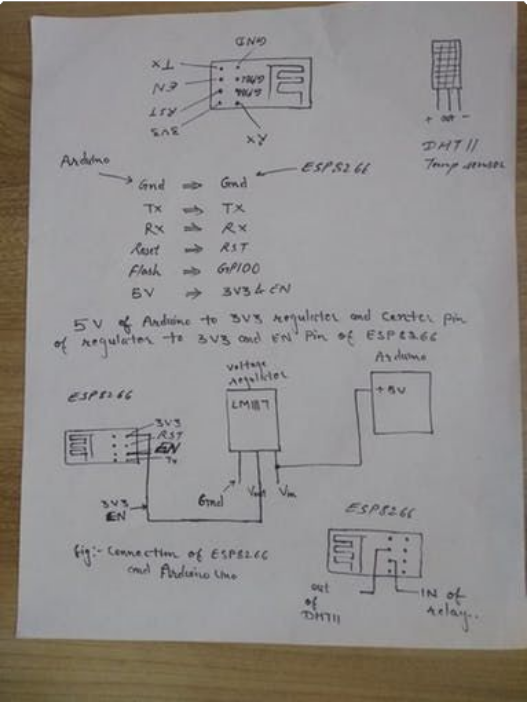 GND
Tx
EN
RST
3V3
GPIO2
GPIO0
Rx
+ out -
DHT11
Temp sensor
Arduino
ESP8266
Gnd ⇒ Gnd
Tx ⇒ TX
Rx ⇒ RX
Reset ⇒ RST
Flash ⇒ GPIO0
5V ⇒ 3V3 & EN
5V of Arduino to 3V3 regulator and Center pin
of regulator to 3V3 and EN Pin of ESP8266
ESP8266
3V3
RST
EN
Tx
voltage
regulator
LM1117
Gnd
Vout
Vin
Arduino
+5V
3V3
EN
fig:- Connection of ESP8266
and Arduino Uno
ESP8266
out
of
DHT11
IN of
relay..